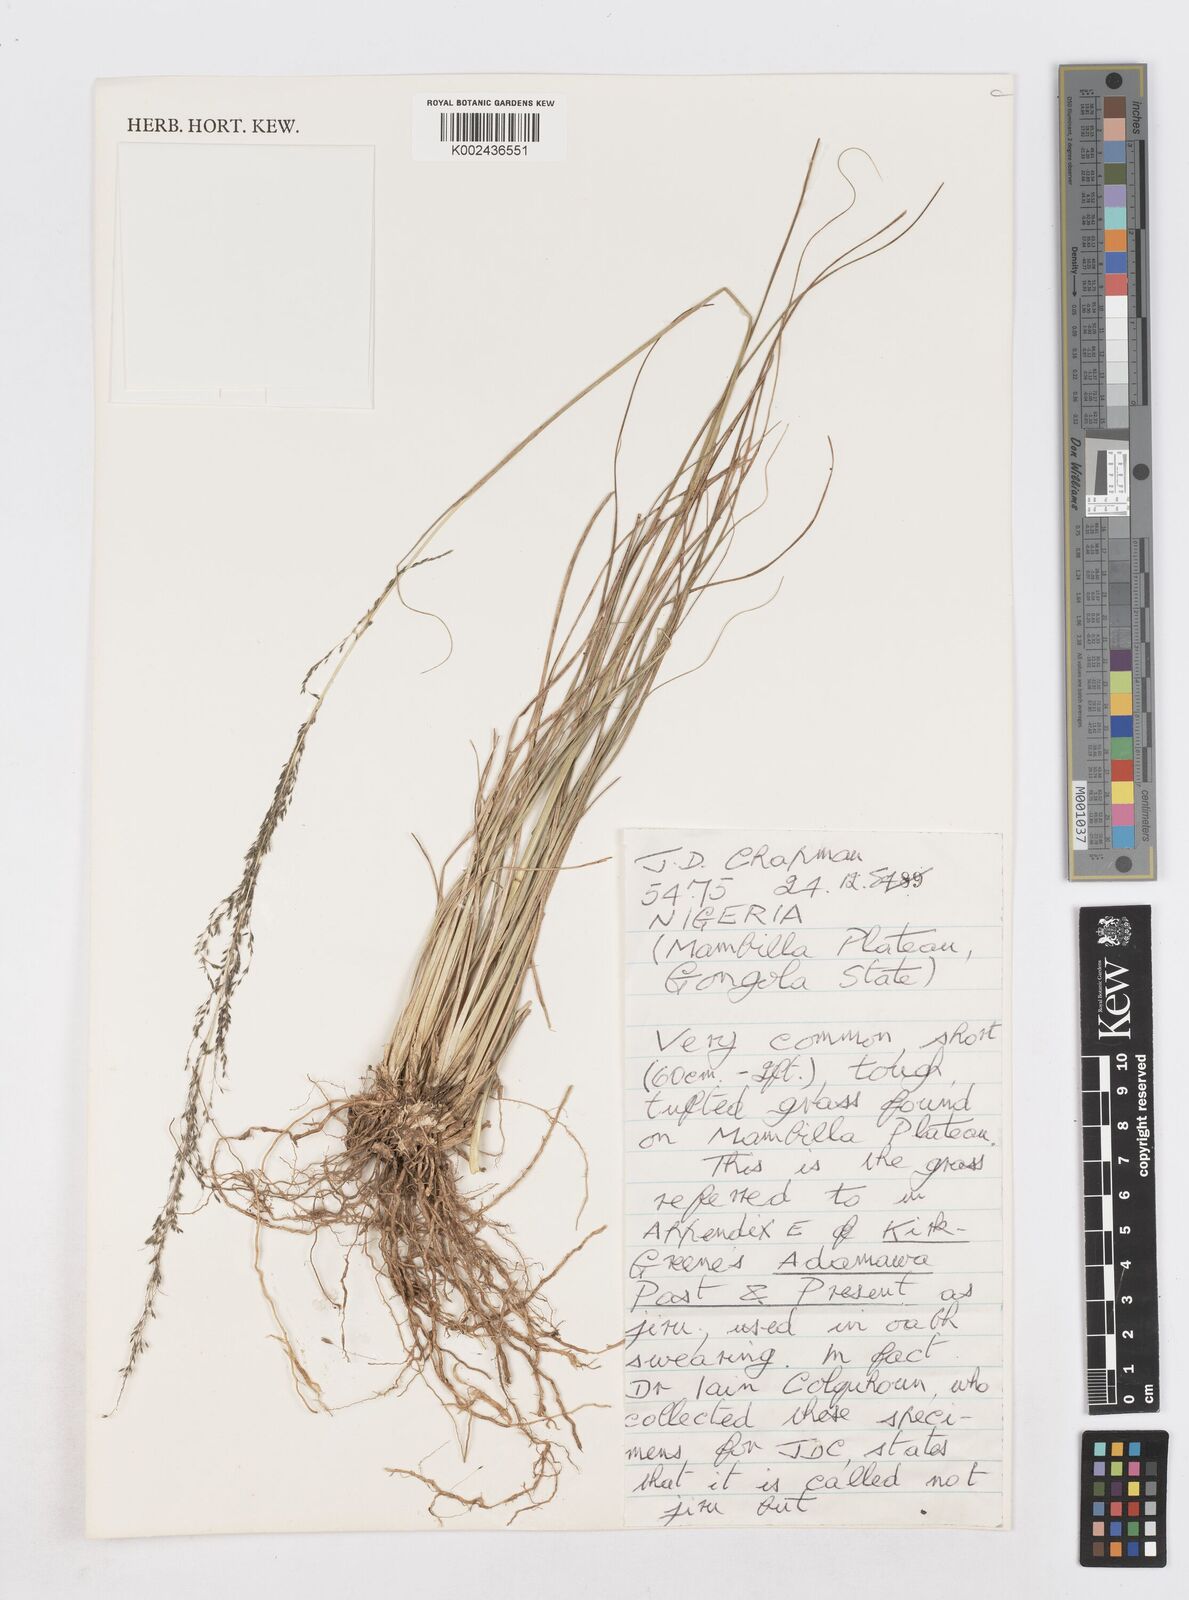 HERB. HORT. KEW.
ROYAL BOTANIC GARDENS KEW
K002436551
J.D. Chapman
5475 24.12.
NIGERIA
(Mambilla Plateau,
Gongola State)
Very common, short
(60cm. - 2ft.), tough,
tufted grass found
on Mambilla Plateau.
This is the grass
referred to in
Appendix E of Kirk-
Greene's Adamawa
Past & Present as
jiru, used in oath
swearing. In fact
Dr Iain Colquhoun, who
collected these speci-
mens for JDC, states
that it is called not
jiru but
inches
Density
Don Williams
centimeters
M001037
Royal Botanic Gardens
Kew
copyright reserved
10
9
8
7
6
5
4
3
2
1
0
cm